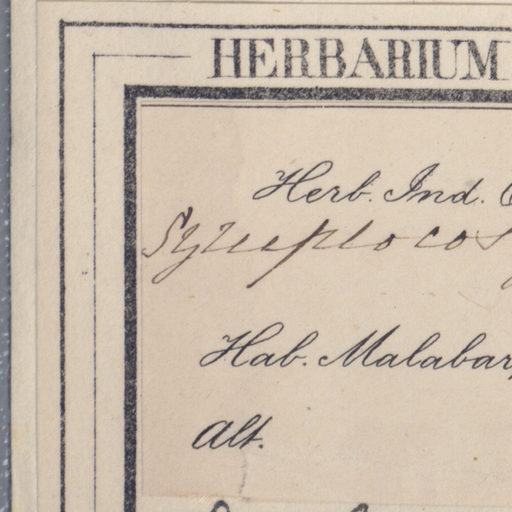 HERBARIUM
Herb. Ind.
Symplocos
Hab. Malabar,
Alt.